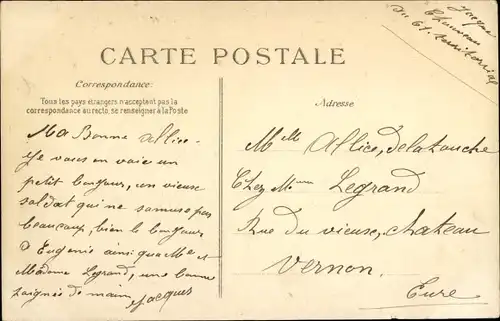 Jacque
Chauveau
au 61. territorial
CARTE POSTALE
Correspondance:
Tous les pays étrangers n'acceptent pas la
correspondance au recto, se renseigner à la Poste
Adresse
Ma Bonne allice.
Je vous en voie un
petit bonjour, un vieuse
soldat qui ne samuse pas
beaucoup, bien le bonjour
D Eugenie ainsi que Mr et
Madame Legrand, une bonne
poignés de main Jacques
Melle Allice, delatouche
Chez Mme Legrand
Rue du vieuse, chateau
Vernon.
Eure